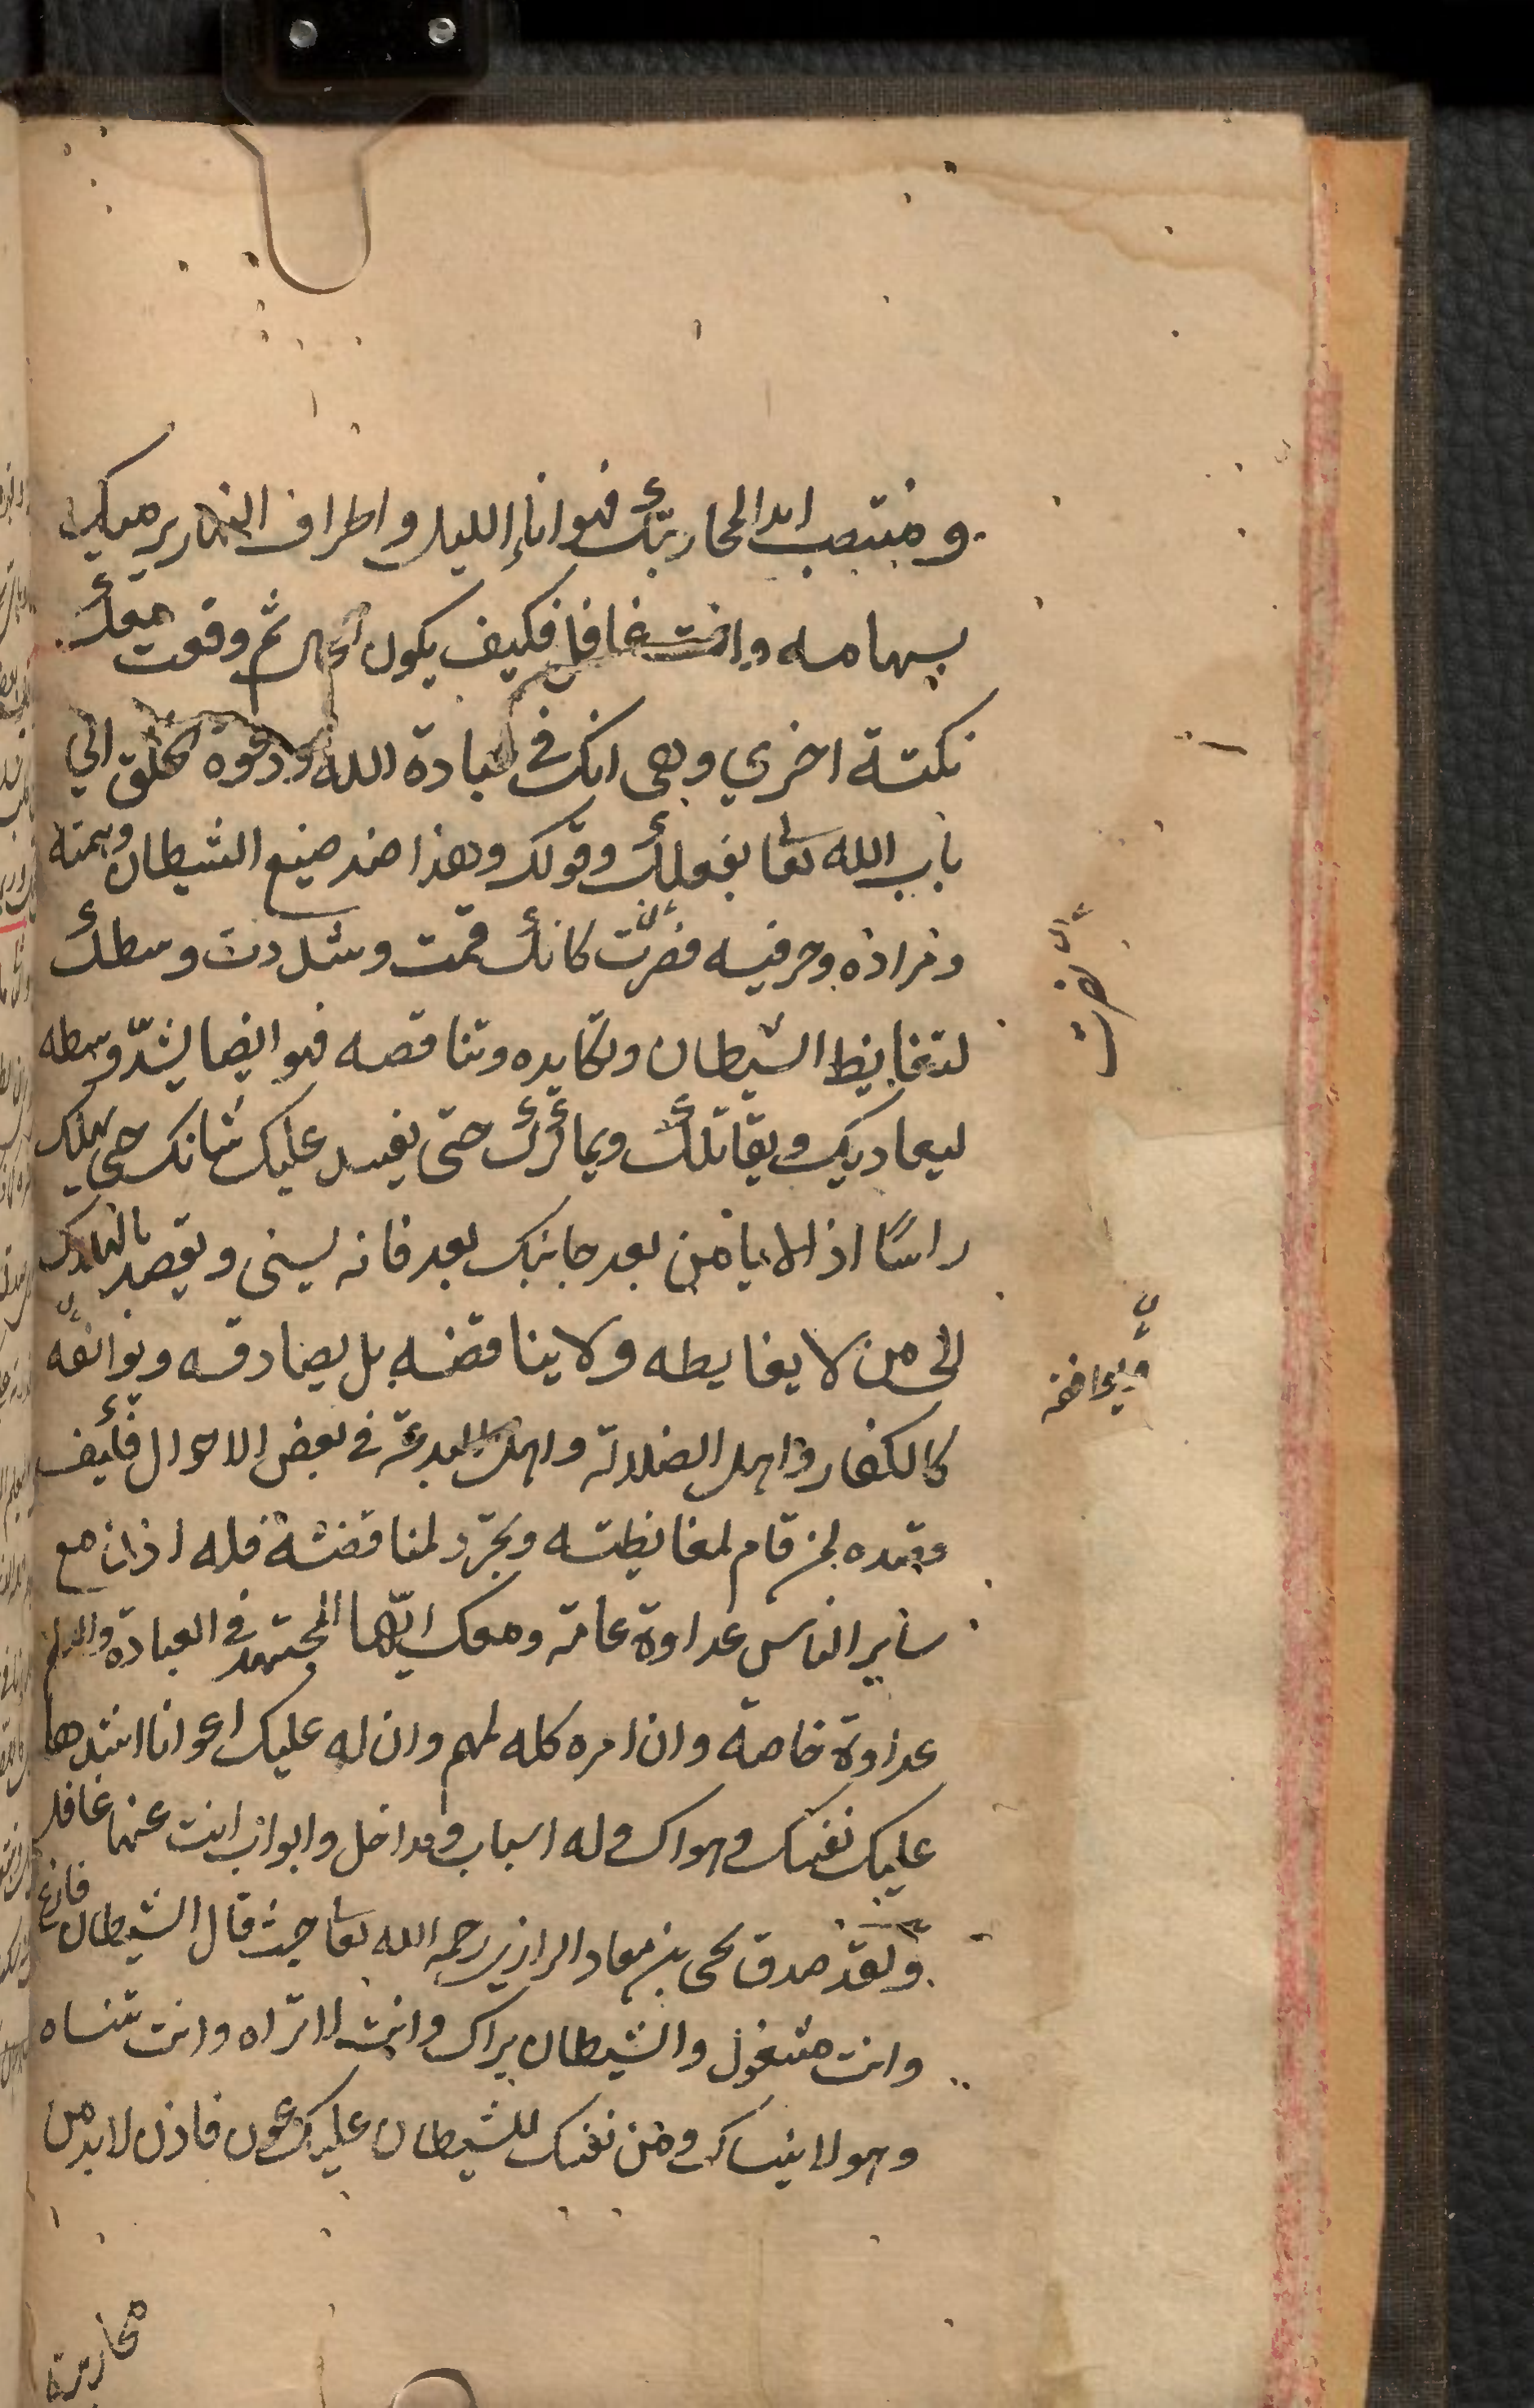 ومنتصب ابدا لمحاربتك فهو اناء الليل واطراف النهار يرميك
بسهامه وانت غافل فكيف يكون الحال ثم وقعت معك
نكتة اخري وهي انك في عبادة الله ودعوة الخلق الي
باب الله تعا بفعلك وقولك وهذا ضد صنيع الشيطان وهمته
ومراده وحرفيه فصرت كانك قمت وشددت وسطك
لتغايظ الشيطان وتكايده وتناقصه فهو ايضا يشدّ وسطه
ليعاديك ويقاتلك ويماكرك حتى يفسد عليك شانك حتى يهلك
راسًا اذ لا يامن بعد جانبك بعد فانه ليسئ ويقصد بالهلاك
الى من لا يغايطه ولا يناقضه بل يصادقه ويوافقه
كالكفار واهل الضلالة واهل البدعة في بعض الاحوال فكيف
وقصده لمن قام لمغايظته وتجرّد لمناقضته فله اذن مع
ساير الناس عداوة عامة ومعك ايّها المجتهد في العبادة والعلم
عداوة خاصة وان امره كله لهم وان له عليك اعوانا اشدها
عليك نفسك وهواك وله اسباب ومداخل وابواب انت عنها غافل
ولقد صدق يحى بن معاد الرازي رحمه الله تعا حيث قال الشيطان فارغ
وانت مشغول والشيطان يراك وانت لا تراه وانت تنساه
وهو لا ينساك ومن نفسك للشيطان عليك عون فاذن لا بد من
محاربة
فصرت
ويوافقه